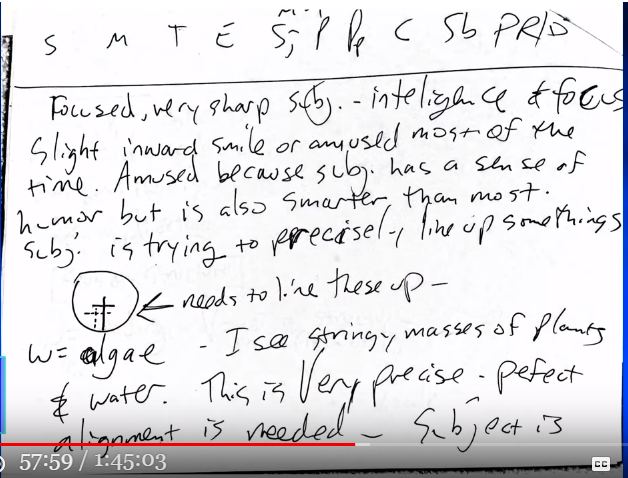 S M T E Sj P Pe C Sb PR/D
Focused, very sharp subj. - inteligence & focus
Slight inward smile or amused most of the
time. Amused because subj. has a sense of
humor but is also smarter than most.
Subj. is trying to precisely line up somethings
← needs to line these up -
W= algae - I see stringy masses of plants
& water. This is Very precise - pefect
alignment is needed - Subject is
57:59 / 1:45:03
CC